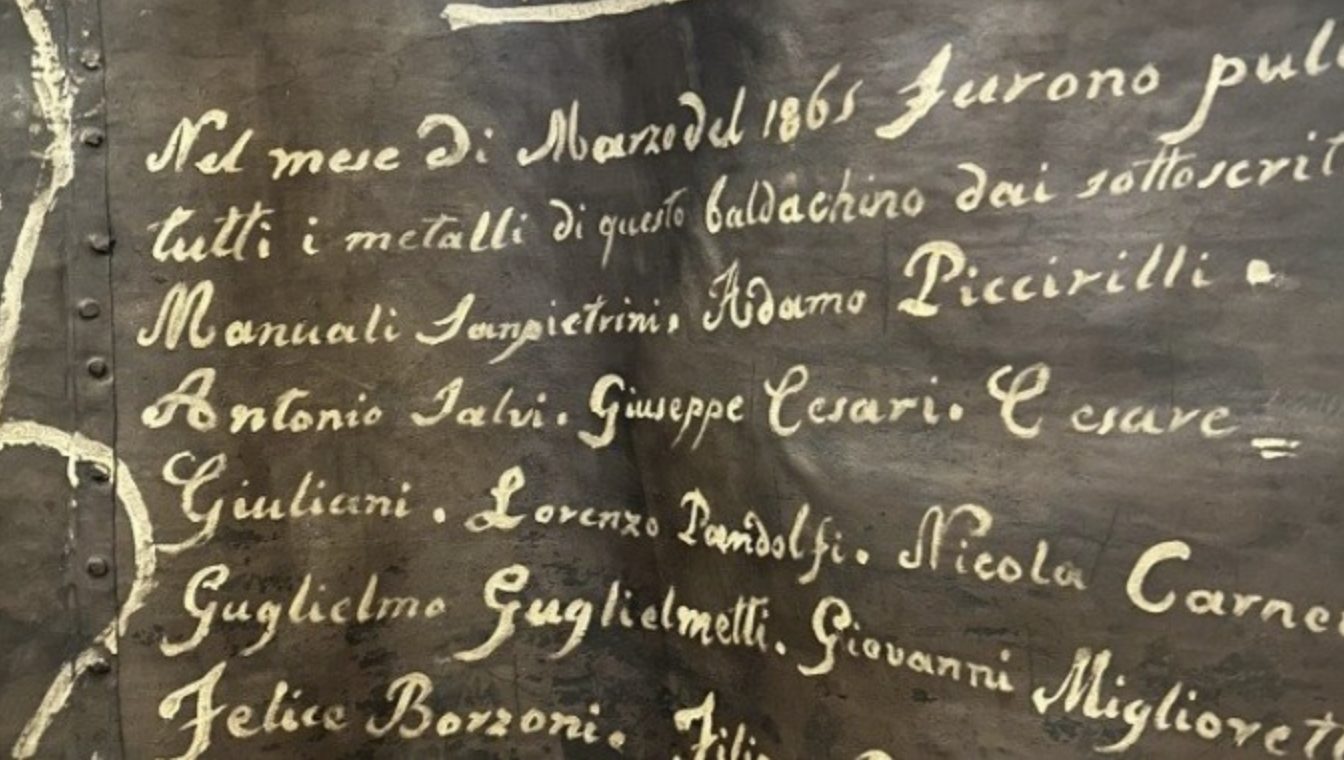 Nel mese di Marzo del 1865 furono pul
tutti i metalli di questo baldachino dai sottoscrit
Manuali Sanpietrini, Adamo Piccirilli.
Antonio Salvi. Giuseppe Cesari. Cesare=
Giuliani. Lorenzo Pandolfi. Nicola Carne
Guglielmo Guglielmetti. Giovanni Migliorett
Felice Borzoni. Filip